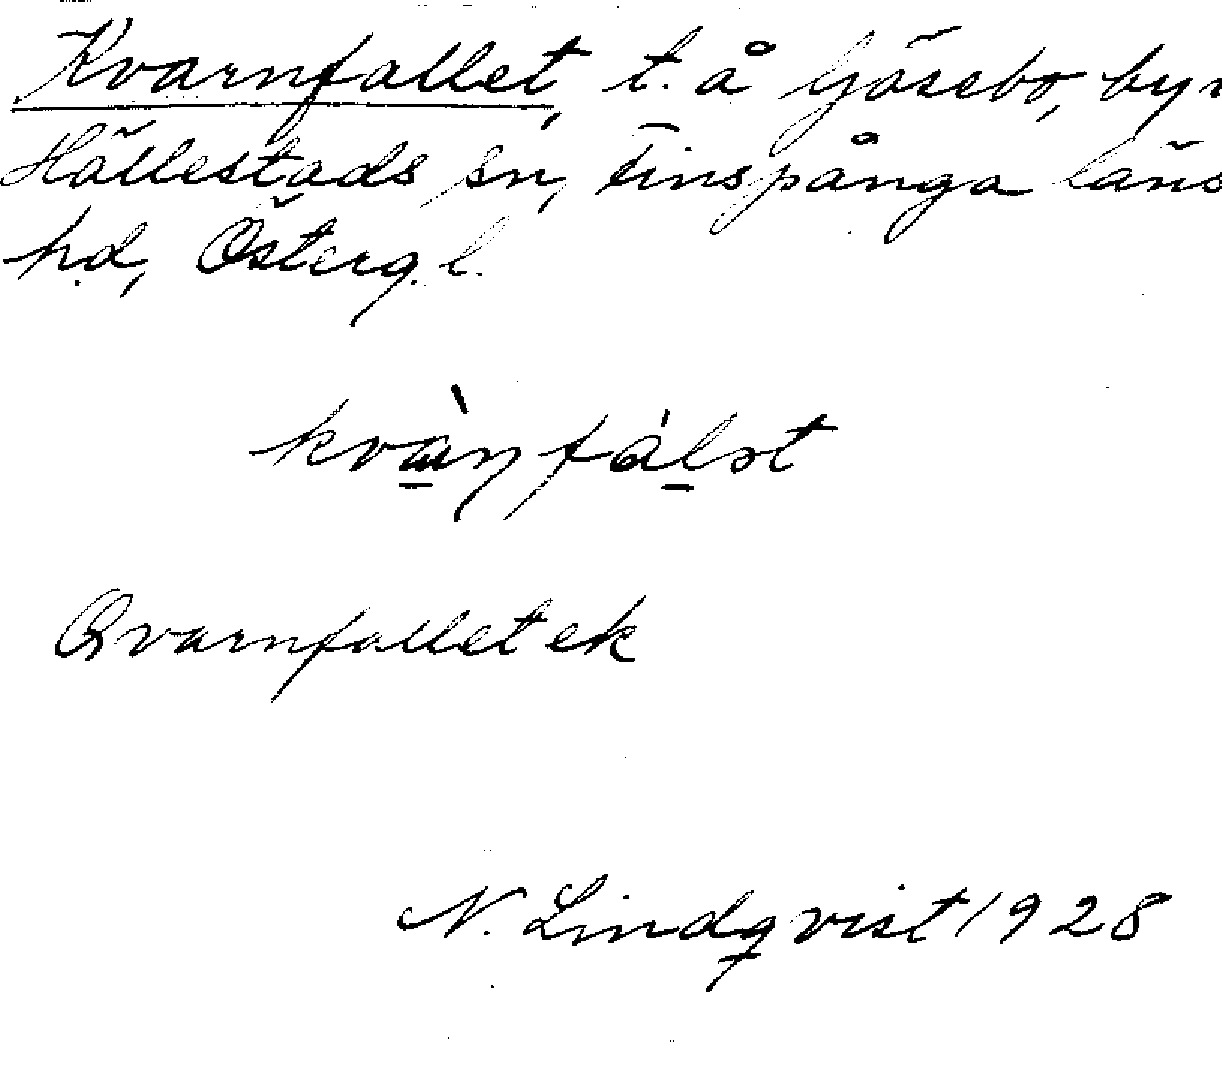 Kvarnfallet, t. å Gösebo, by,
Hällestads sn, Finspånga läns
hd, Österg. l.
kvàṇfálət
Qvarnfallet ek
N. Lindqvist 1928